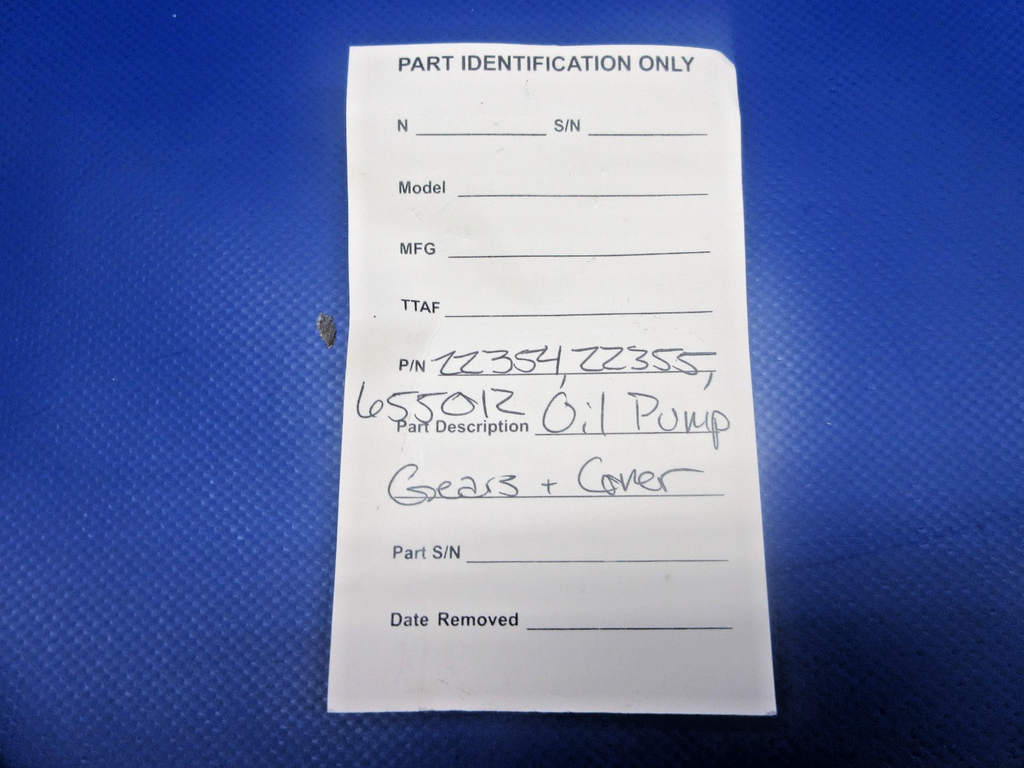 PART IDENTIFICATION ONLY
N S/N
Model
MFG
TTAF
P/N 22354, 22355,
655012
Part Description Oil Pump
Gears + Cover
Part S/N
Date Removed